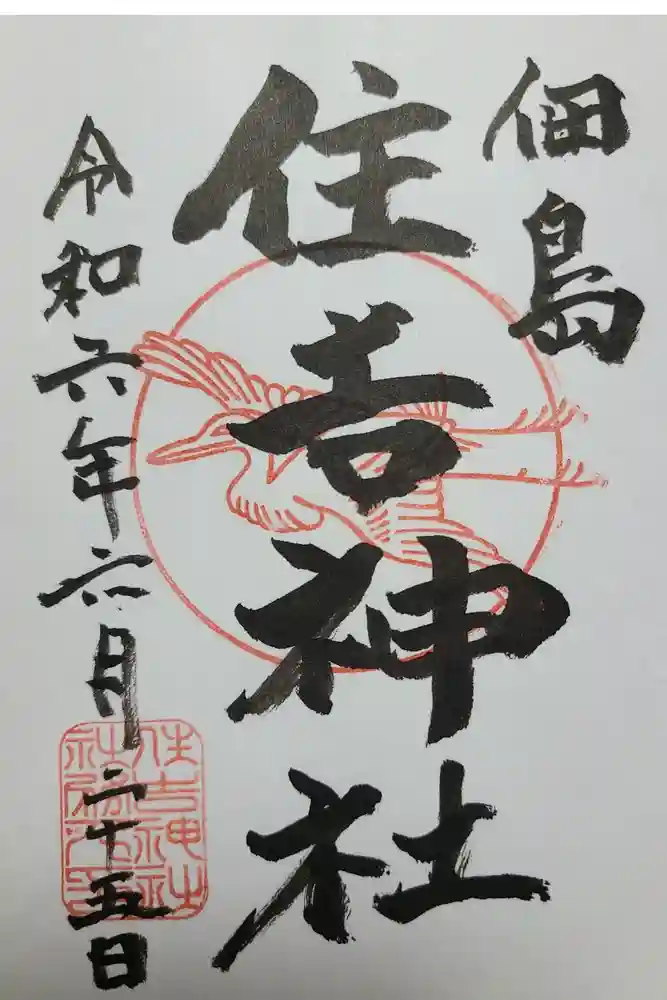 佃島
住吉神社
令和六年六月二十五日
住吉神社
社務所之印